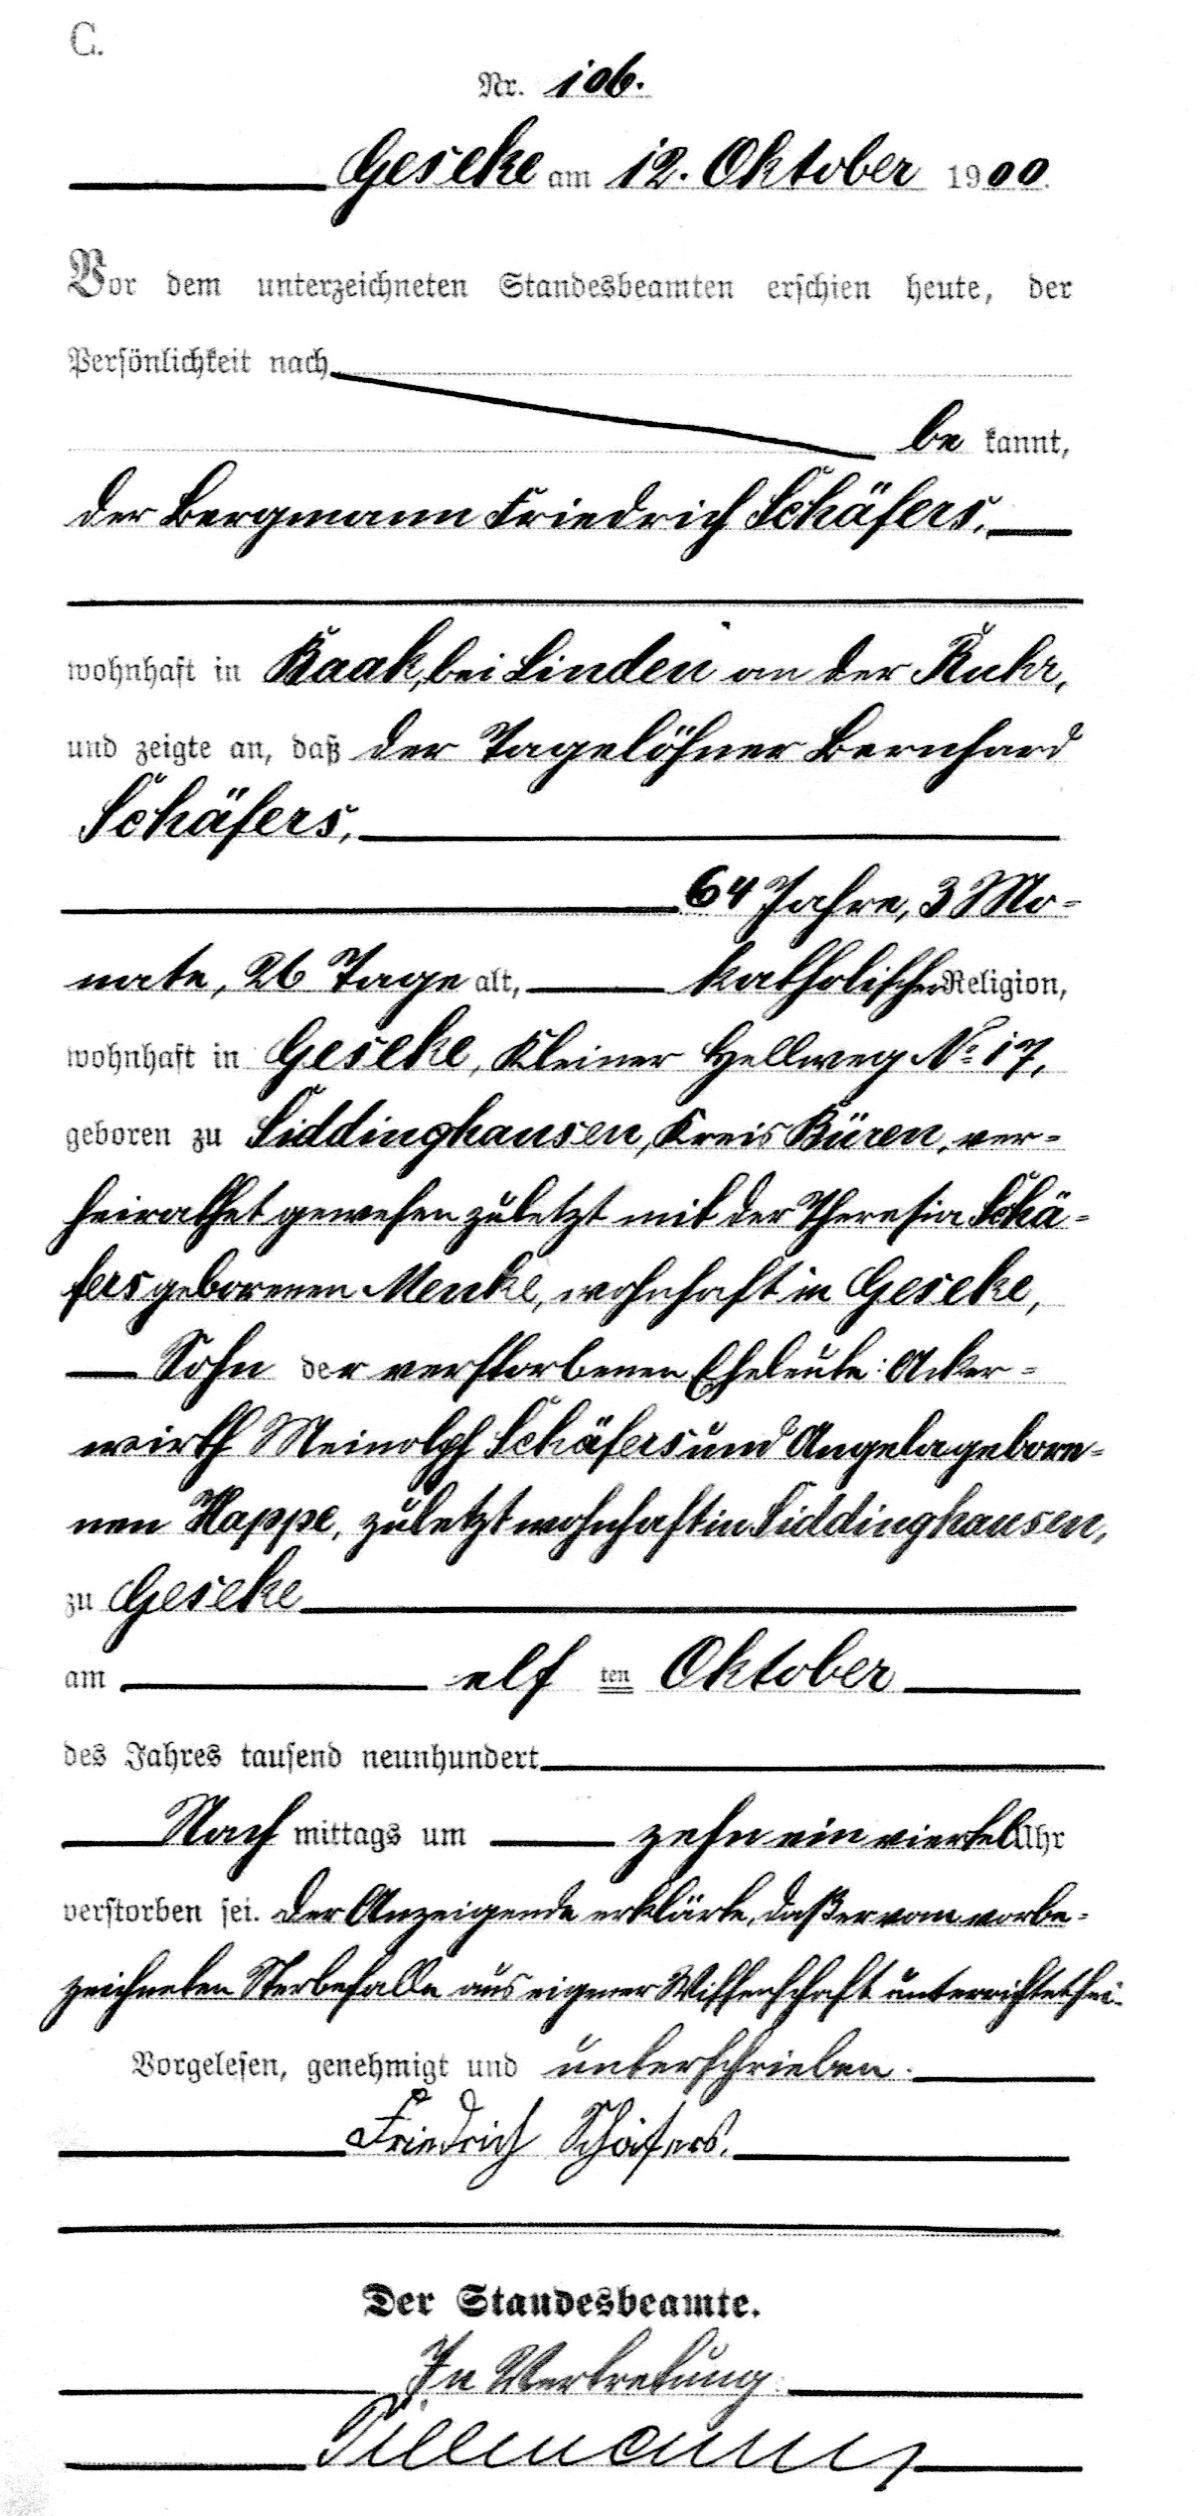 C.
Nr. 106.
Geseke am 12. Oktober 1900.
Vor dem unterzeichneten Standesbeamten erschien heute, der
Persönlichkeit nach
be kannt,
der Bergmann Friedrich Schäfers,
wohnhaft in Baak, bei Linden an der Ruhr,
und zeigte an, daß der Tagelöhner Bernhard
Schäfers,
64 Jahre, 3 Mo=
nate, 26 Tage alt, katholischer Religion,
wohnhaft in Geseke, Kleiner Hellweg No 17,
geboren zu Siddinghausen, Kreis Büren, ver=
heirathet gewesen zuletzt mit der Theresia Schä=
fers geborenen Menke, wohnhaft in Geseke,
Sohn der verstorbenen Eheleute: Acker=
wirth Meinolph Schäfers und Angela gebore=
nen Happe, zuletzt wohnhaft in Siddinghausen,
zu Geseke
am elf ten Oktober
des Jahres tausend neunhundert
Nach mittags um zehn ein viertel Uhr
verstorben sei. Der Anzeigende erklärte, daß er vom vorbe=
zeichneten Sterbefalle aus eigener Wissenschaft unterrichtet sei.
Vorgelesen, genehmigt und unterschrieben.
Friedrich Schäfers.
Der Standesbeamte.
In Vertretung.
Tillmann